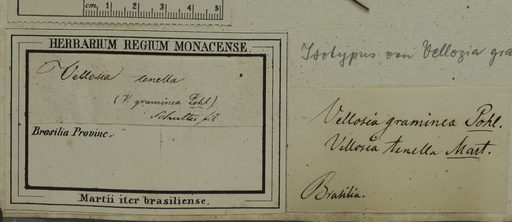 cm 1 2 3 4 5
HERBARIUM REGIUM MONACENSE.
Vellosia tenella
(V. graminea Pohl)
Schultes fil
Brasilia Provinc.
Martii iter brasiliense.
Isotypus von Vellozia gra
Vellosia graminea Pohl.
Vellosia tenella Mart.
Brasilia.